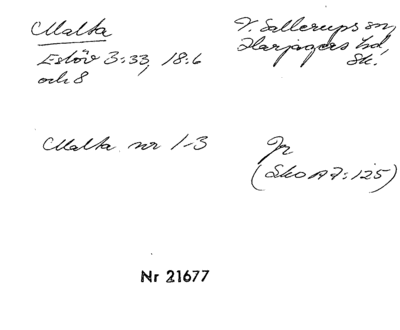 Malta
V. Sallerups sn,
Harjagers hd,
Sk.
Eslöv 3:33, 18:6
och 8
Malta nr 1-3
Jr
(SkoA7:125)
Nr 21677